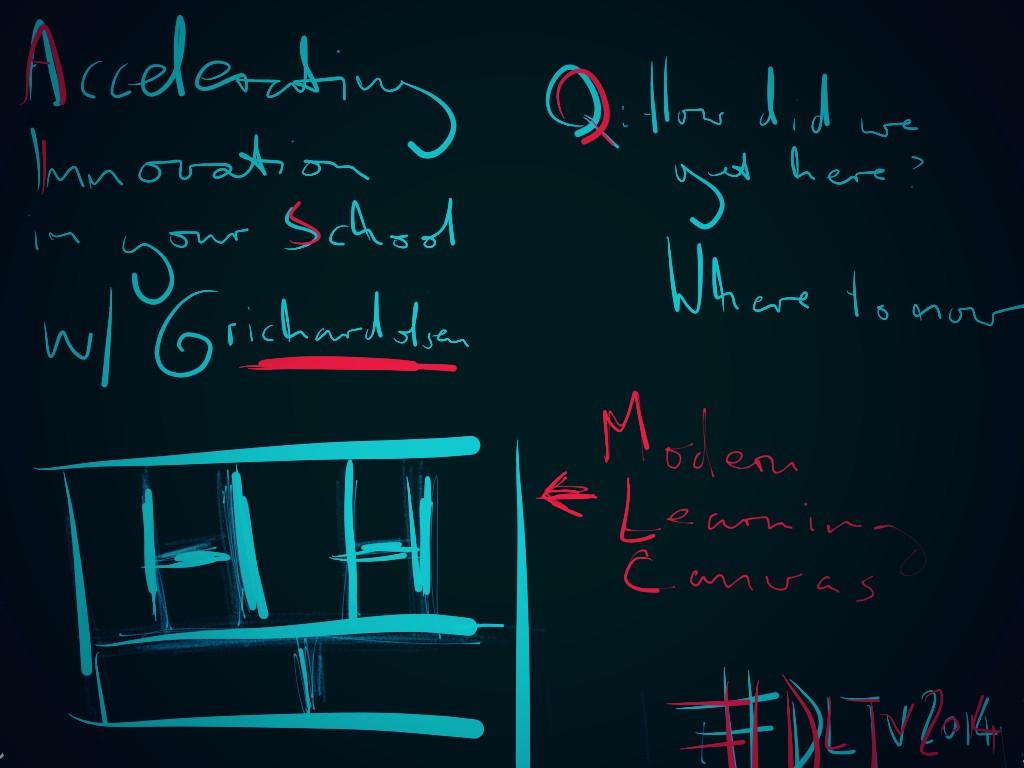 Accelerating
Innovation
in your School
w/ Grichardolsen
Q: How did we
get here?
Where to now
Modern
Learning
Canvas
#DLTV2014